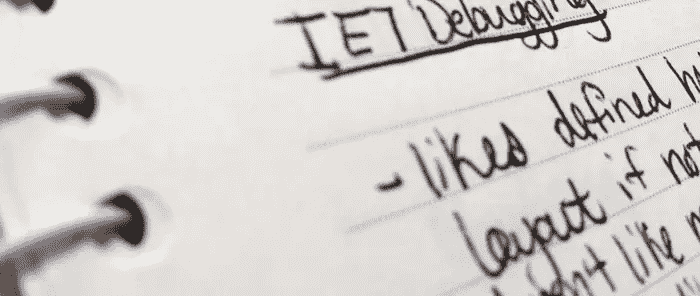 IE7 Debugging
- likes defined
layout if not
like